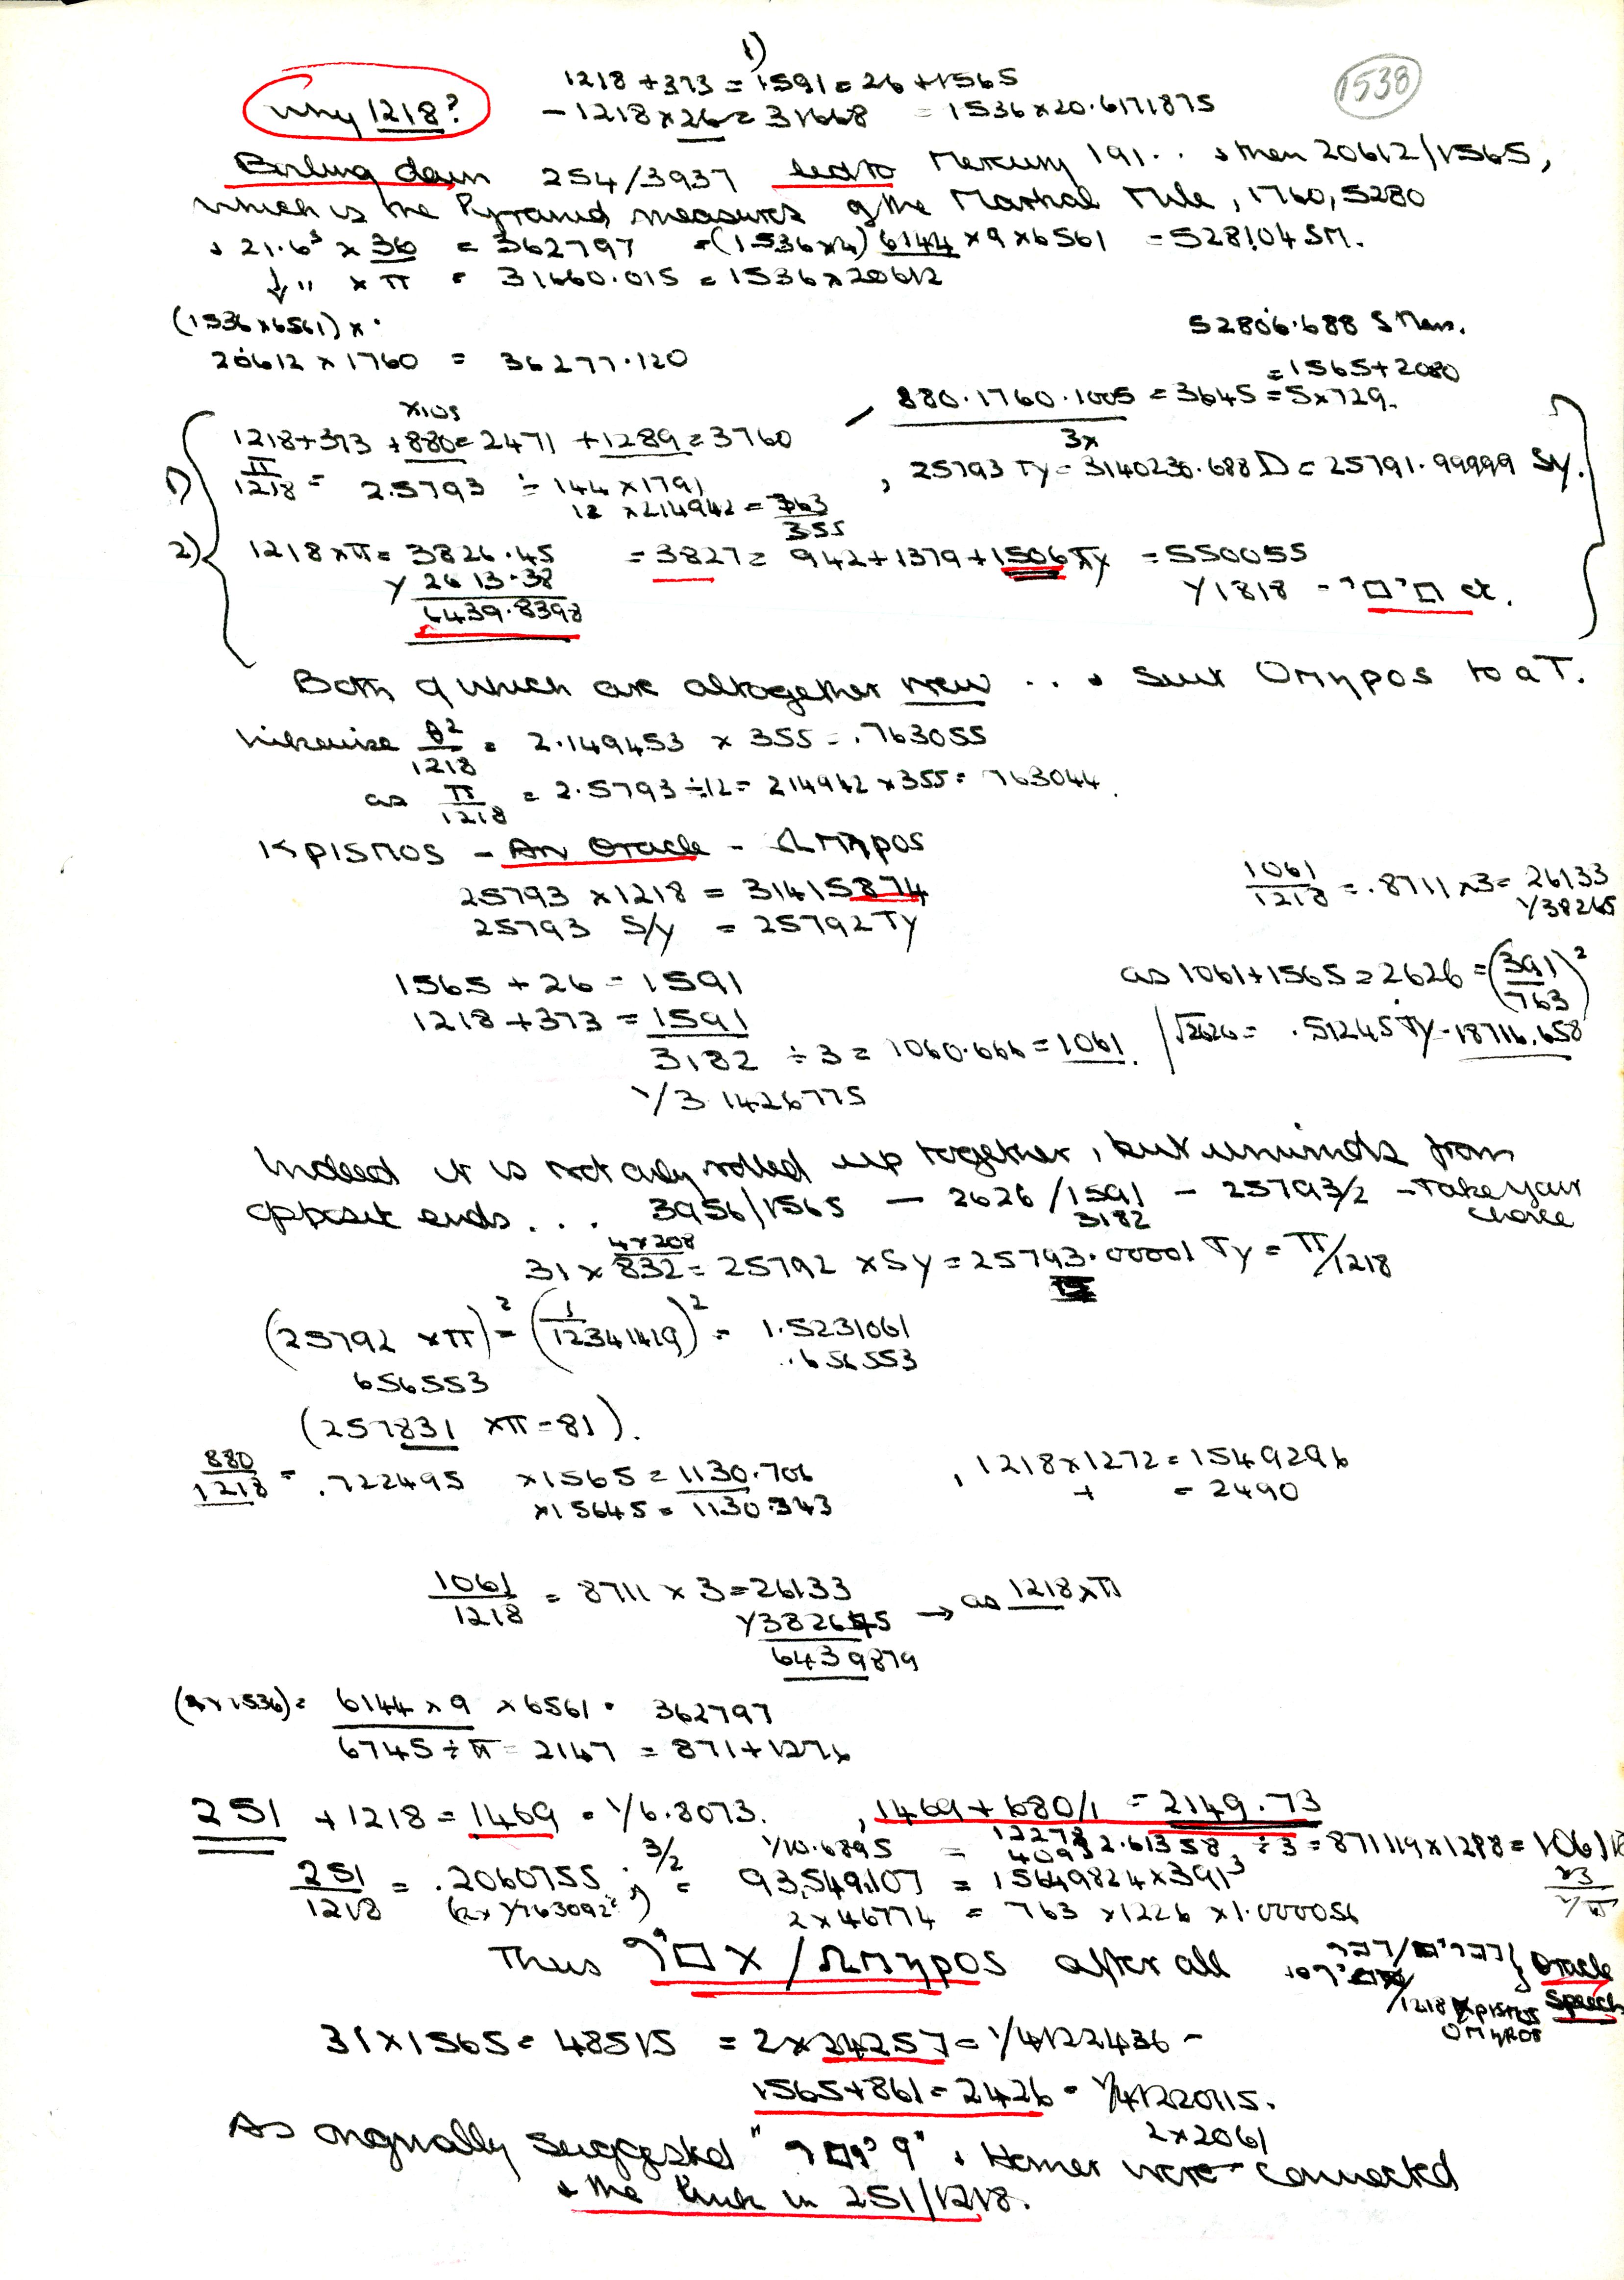 1)
1538
Why 1218?
1218 + 373 = 1591 = 26 + 1565
- 1218 x 26 = 31668 = 1536 x 20.6171875
Boiling down 254/3937 led to Mercury 191 .. & then 20612/1565,
which is the Pyramid measures of the Martial Mile, 1760, 5280
& 21.6³ x 36 = 362797 = (1536 x 4) 6144 x 9 x 6561 = 528104 SM.
↓ " x π = 31660.015 = 1536 x 20612
(1536 x 6561) x
20612 x 1760 = 36277.120
52806.688 S
= 1565 + 2080
880.1760.1005 = 3645 = 5 x 729.
3x
x105
1218 + 373 + 880 = 2471 + 1289 = 3760
1) π/1218 = 2.5793 ÷ 144 x 1791
12 x 214942 = 763/355
, 25793 Ty = 3140236.688 D = 25791.99999 Sy.
2) 1218 x π = 3826.45 = 3827 = 942 + 1379 + 1506 Ty = 550055
Y 2613.38
6439.8398
Y1818
Both of which are altogether new ... & suit Ομηρος to a T.
Likewise θ²/1218 = 2.149453 x 355 = .763055
as π/1218 = 2.5793 ÷ 12 = 214942 x 355 = 763044.
An Oracle - Ωμηρος
25793 x 1218 = 31415874
25793 S/y = 25792 Ty
1061/1218 = .8711 x 3 = 26133
Y38265
1565 + 26 = 1591
1218 + 373 = 1591
3182 ÷ 3 = 1060.666 = 1061.
Y3.1426775
as 1061 + 1565 = 2626 = (391/763)²
√2626 = .51245 Ty - 18716.658
Indeed it is not only rolled up together, but unwinds from
opposite ends ... 3956/1565 — 2626/1591 - 25793/2 - Take your choice
3182
4 x 208
31 x 832 = 25792 x Sy = 25793.00001 Ty = π/1218
(25792 x π)² = (1/12341419)² = 1.5231061
.656553
656553
(257831 x π = 81).
880/1218 = .722495 x 1565 = 1130.706
x 15645 = 1130.343
, 1218 x 1272 = 1549296
+ = 2490
1061/1218 = 8711 x 3 = 26133
Y382645 → as 1218 x π
6439879
(4 x 1536) = 6144 x 9 x 6561 = 362797
6745 ÷ π = 2147 = 871 + 1276
251 + 1218 = 1469 = Y6.8073. , 1469 + 680/1 = 2149.73
251/1218 = .2060755 3/2 = 93,549,107 = 15649824 x 391³
Y10.6895 = 2.61358 ÷ 3 = 871119 x 1218 =
2 x 46774 = 763 x 1226 x 1.000056
Thus / Ωμηρος after all
Oracle
Speech
31 x 1565 = 48515 = 2 x 24257 = Y4122436 -
1565 + 861 = 2426 = Y4122015.
2 x 2061
As originally suggested & Homer were connected
& the link in 251/1218.